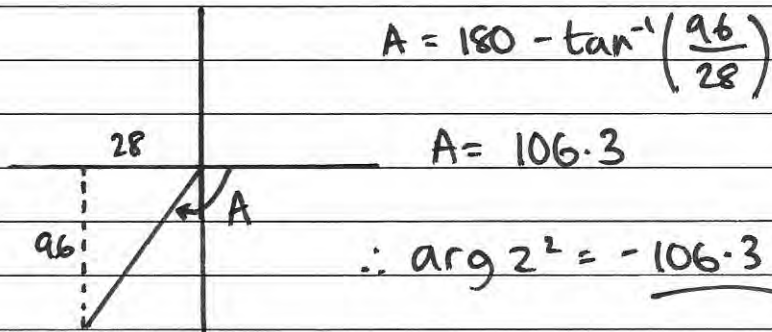 A = 180 - tan⁻¹(96/28)
28
A = 106.3
A
96
∴ arg z² = -106.3